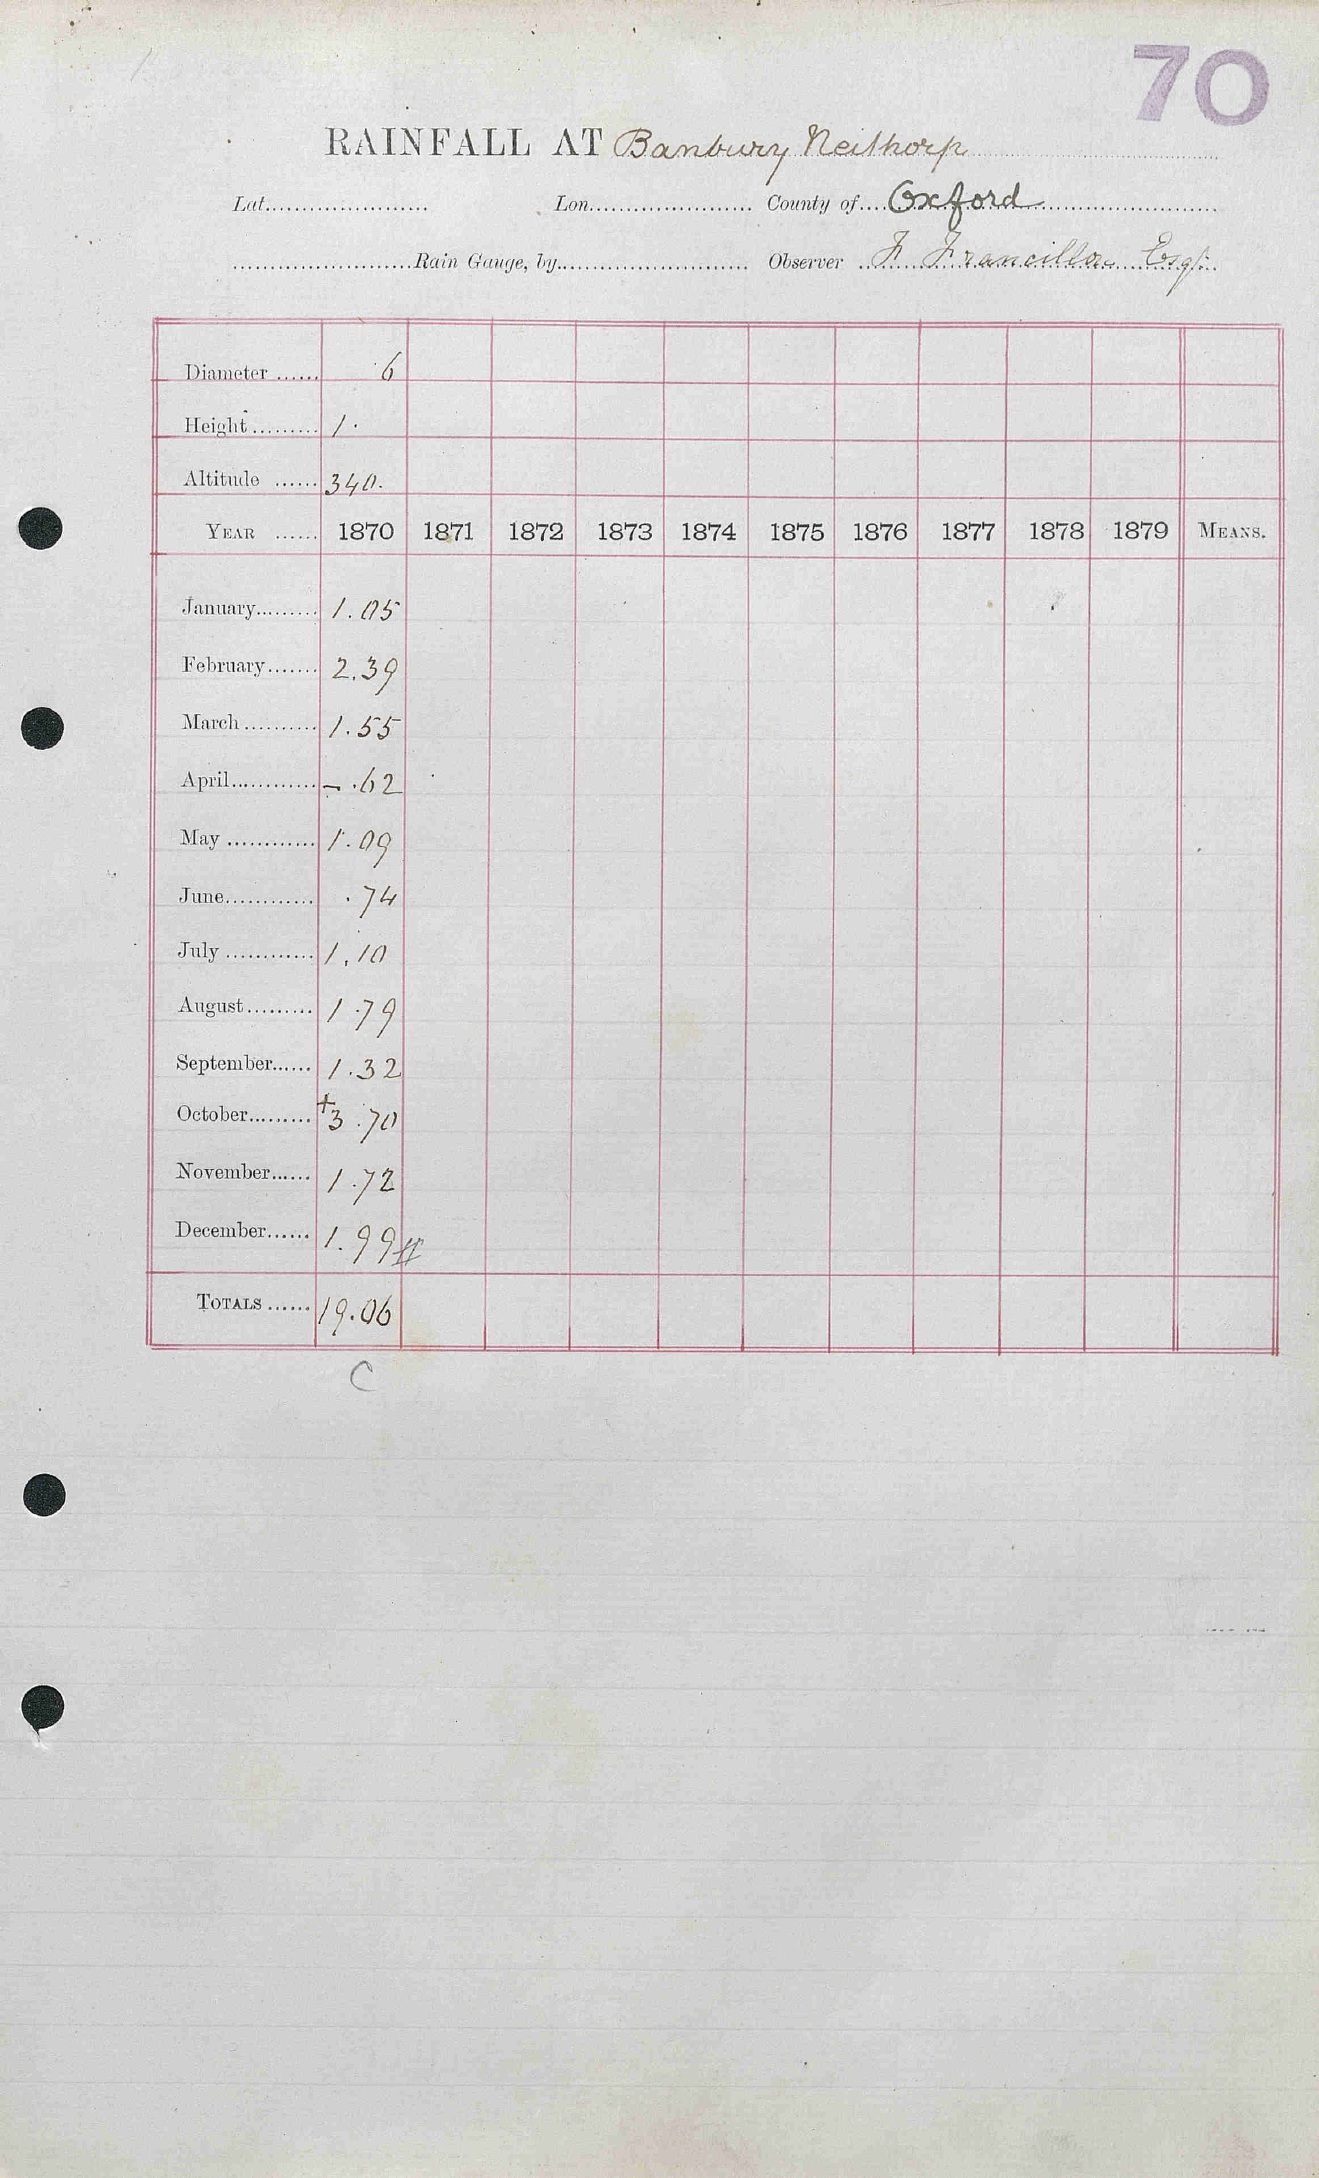 70
RAINFALL AT Banbury Neithorp
Lat...................... Lon...................... County of.... Oxford
........................Rain Gauge, by.......................... Observer F Francillon Esqr.
Diameter ...... 6
Height......... 1.
Altitude ...... 340.
YEAR ...... 1870 1871 1872 1873 1874 1875 1876 1877 1878 1879 MEANS.
January......... 1.05
February....... 2.39
March.......... 1.55
April............ – .62
May ............ 1.09
June............ .74
July ............ 1.10
August......... 1.79
September...... 1.32
October......... +3.70
November...... 1.72
December...... 1.99 #
TOTALS ...... 19.06
C